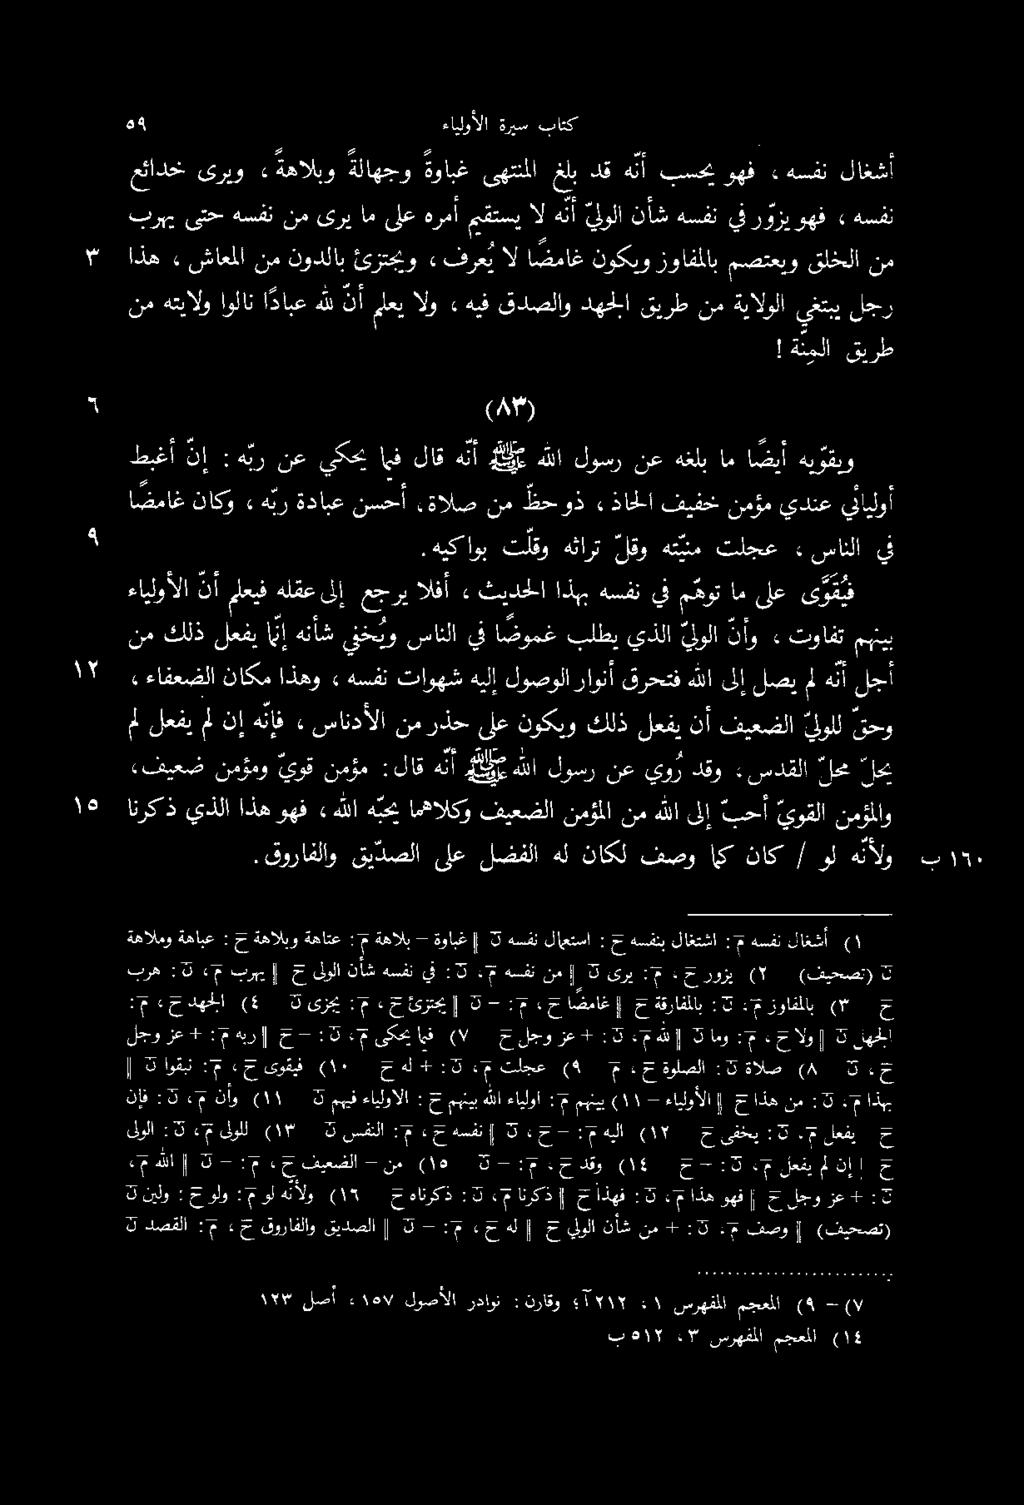 كتاب سيرة الأولياء ٥٩
أشغال نفسه ، فهو يحسب أنّه قد بلغ المنتهى غباوةً وجهالةً وبلاهةً ، ويرى خدائع
نفسه ، فهو يزوّر في نفسه شأن الوليّ أنّه لا يستقيم أمره على ما يرى من نفسه حتى يهرب
من الخلق ويعتصم بالمفاوز ويكون غامضًا لا يُعرف ، ويجتزئ بالدون من المعاش ، هذا ٣
رجل يبتغي الولاية من طريق الجهد والصدق فيه ، ولا يعلم أنّ لله عبادًا نالوا ولايته من
طريق المِنّة !
(٨٣) ٦
ويقوّيه أيضًا ما بلغه عن رسول الله ﷺ أنّه قال فيما يحكي عن ربّه : إنّ أغبط
أوليائي عندي مؤمن خفيف الحاذ ، ذو حظّ من صلاة ، أحسن عبادة ربّه ، وكان غامضًا
في الناس ، عجلت منيّته وقلّ تراثه وقلّت بواكيه . ٩
فيُقَوَّى على ما توهّم في نفسه بهذا الحديث ، أفلا يرجع إلى عقله فيعلم أنّ الأولياء
بينهم تفاوت ، وأنّ الوليّ الذي يطلب غموضًا في الناس ويُخفي شأنه إنّما يفعل ذلك من
أجل أنّه لم يصل إلى الله فتحرق أنوار الوصول إليه شهوات نفسه ، وهذا مكان الضعفاء ، ١٢
وحقّ للوليّ الضعيف أن يفعل ذلك ويكون على حذر من الأدناس ، فإنّه إن لم يفعل لم
يحلّ محلّ القدس ، وقد رُوي عن رسول الله ﷺ أنّه قال : مؤمن قويّ ومؤمن ضعيف ،
والمؤمن القويّ أحبّ إلى الله من المؤمن الضعيف وكلاهما يحبّه الله ، فهو هذا الذي ذكرنا ١٥
ولأنّه لو / كان كما وصف لكان له الفضل على الصدّيق والفاروق . ١٦٠ ب
١) أشغال نفسه م : اشتغال بنفسه ح : استعمال نفسه ن ‖ غباوة – بلاهة م : عتاهة وبلاهة ح : عباهة وملاهة
ن (تصحيف) ٢) يزور ح ، م : يرى ن ‖ من نفسه م ، ن : في نفسه شأن الولى ح ‖ يهرب م ، ن : بره
ح ٣) بالمفاوز م ، ن : بالمفارقة ح ‖ غامضًا ح ، م : – ن ‖ يجتزئ ح ، م : يجزى ن ٤) الجهد ح ، م :
الجهل ن ‖ ولا ح ، م : وما ن ‖ لله م ، ن : + عز وجل ح ٧) فيما يحكى م ، ن : – ح ‖ ربه م : + عز وجل
ح ، ن ٨) صلاة ن : الصلوة ح ، م ٩) عجلت م ، ن : + له ح ١٠) فيقوى ح ، م : نبقوا ن ‖
بهذا م ، ن : من هذا ح ‖ الأولياء – ١١) بينهم م : اولياء الله بينهم ح : الاولياء فيهم ن ١١) وأن م ، ن : فإن
ح ‖ يفعل م ، ن : يخفى ح ١٢) اليه م : – ح ، ن ‖ نفسه ح ، م : النفس ن ١٣) للولى م ، ن : الولى
ح ‖ إن لم يفعل م ، ن : – ح ١٤) وقد ح ، م : – ن ١٥) من – الضعيف ح ، م : – ن ‖ الله م ،
ن : + عز وجل ح ‖ فهو هذا م ، ن : فهذا ح ‖ ذكرنا م ، ن : ذكرناه ح ١٦) ولأنّه لو م : ولو ح : ولين ن
(تصحيف) ‖ وصف م ، ن : + من شأن الولي ح ‖ له ح ، م : – ن ‖ الصديق والفاروق ح ، م : القصد ن
٧) – ٩) المعجم المفهرس ١ ، ٢١٢ آ ؛ وقارن : نوادر الأصول ١٥٧ ، أصل ١٢٣
١٤) المعجم المفهرس ٣ ، ٥١٢ ب